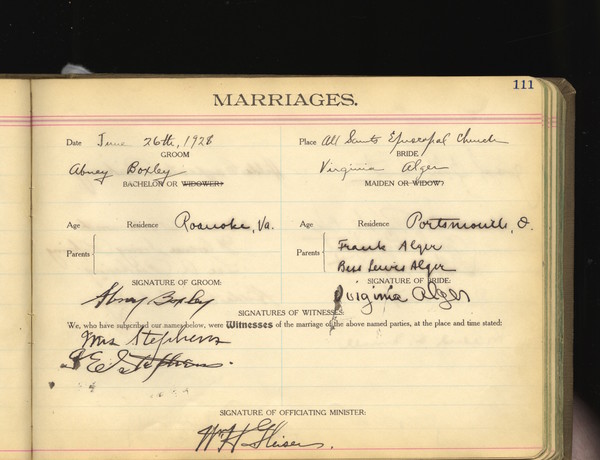 111
MARRIAGES.
Date June 26th, 1928 Place All Saints Episcopal Church
GROOM BRIDE
Abney Boxley Virginia Alger
BACHELOR OR WIDOWER? MAIDEN OR WIDOW?
Age Residence Roanoke, Va. Age Residence Portsmouth, O.
Parents Parents Frank Alger
Bess Lewis Alger
SIGNATURE OF GROOM: SIGNATURE OF BRIDE:
Abney Boxley Virginia Alger
SIGNATURES OF WITNESSES:
We, who have subscribed our names below, were Witnesses of the marriage of the above named parties, at the place and time stated:
Mrs Stephens
E Stephens.
SIGNATURE OF OFFICIATING MINISTER: